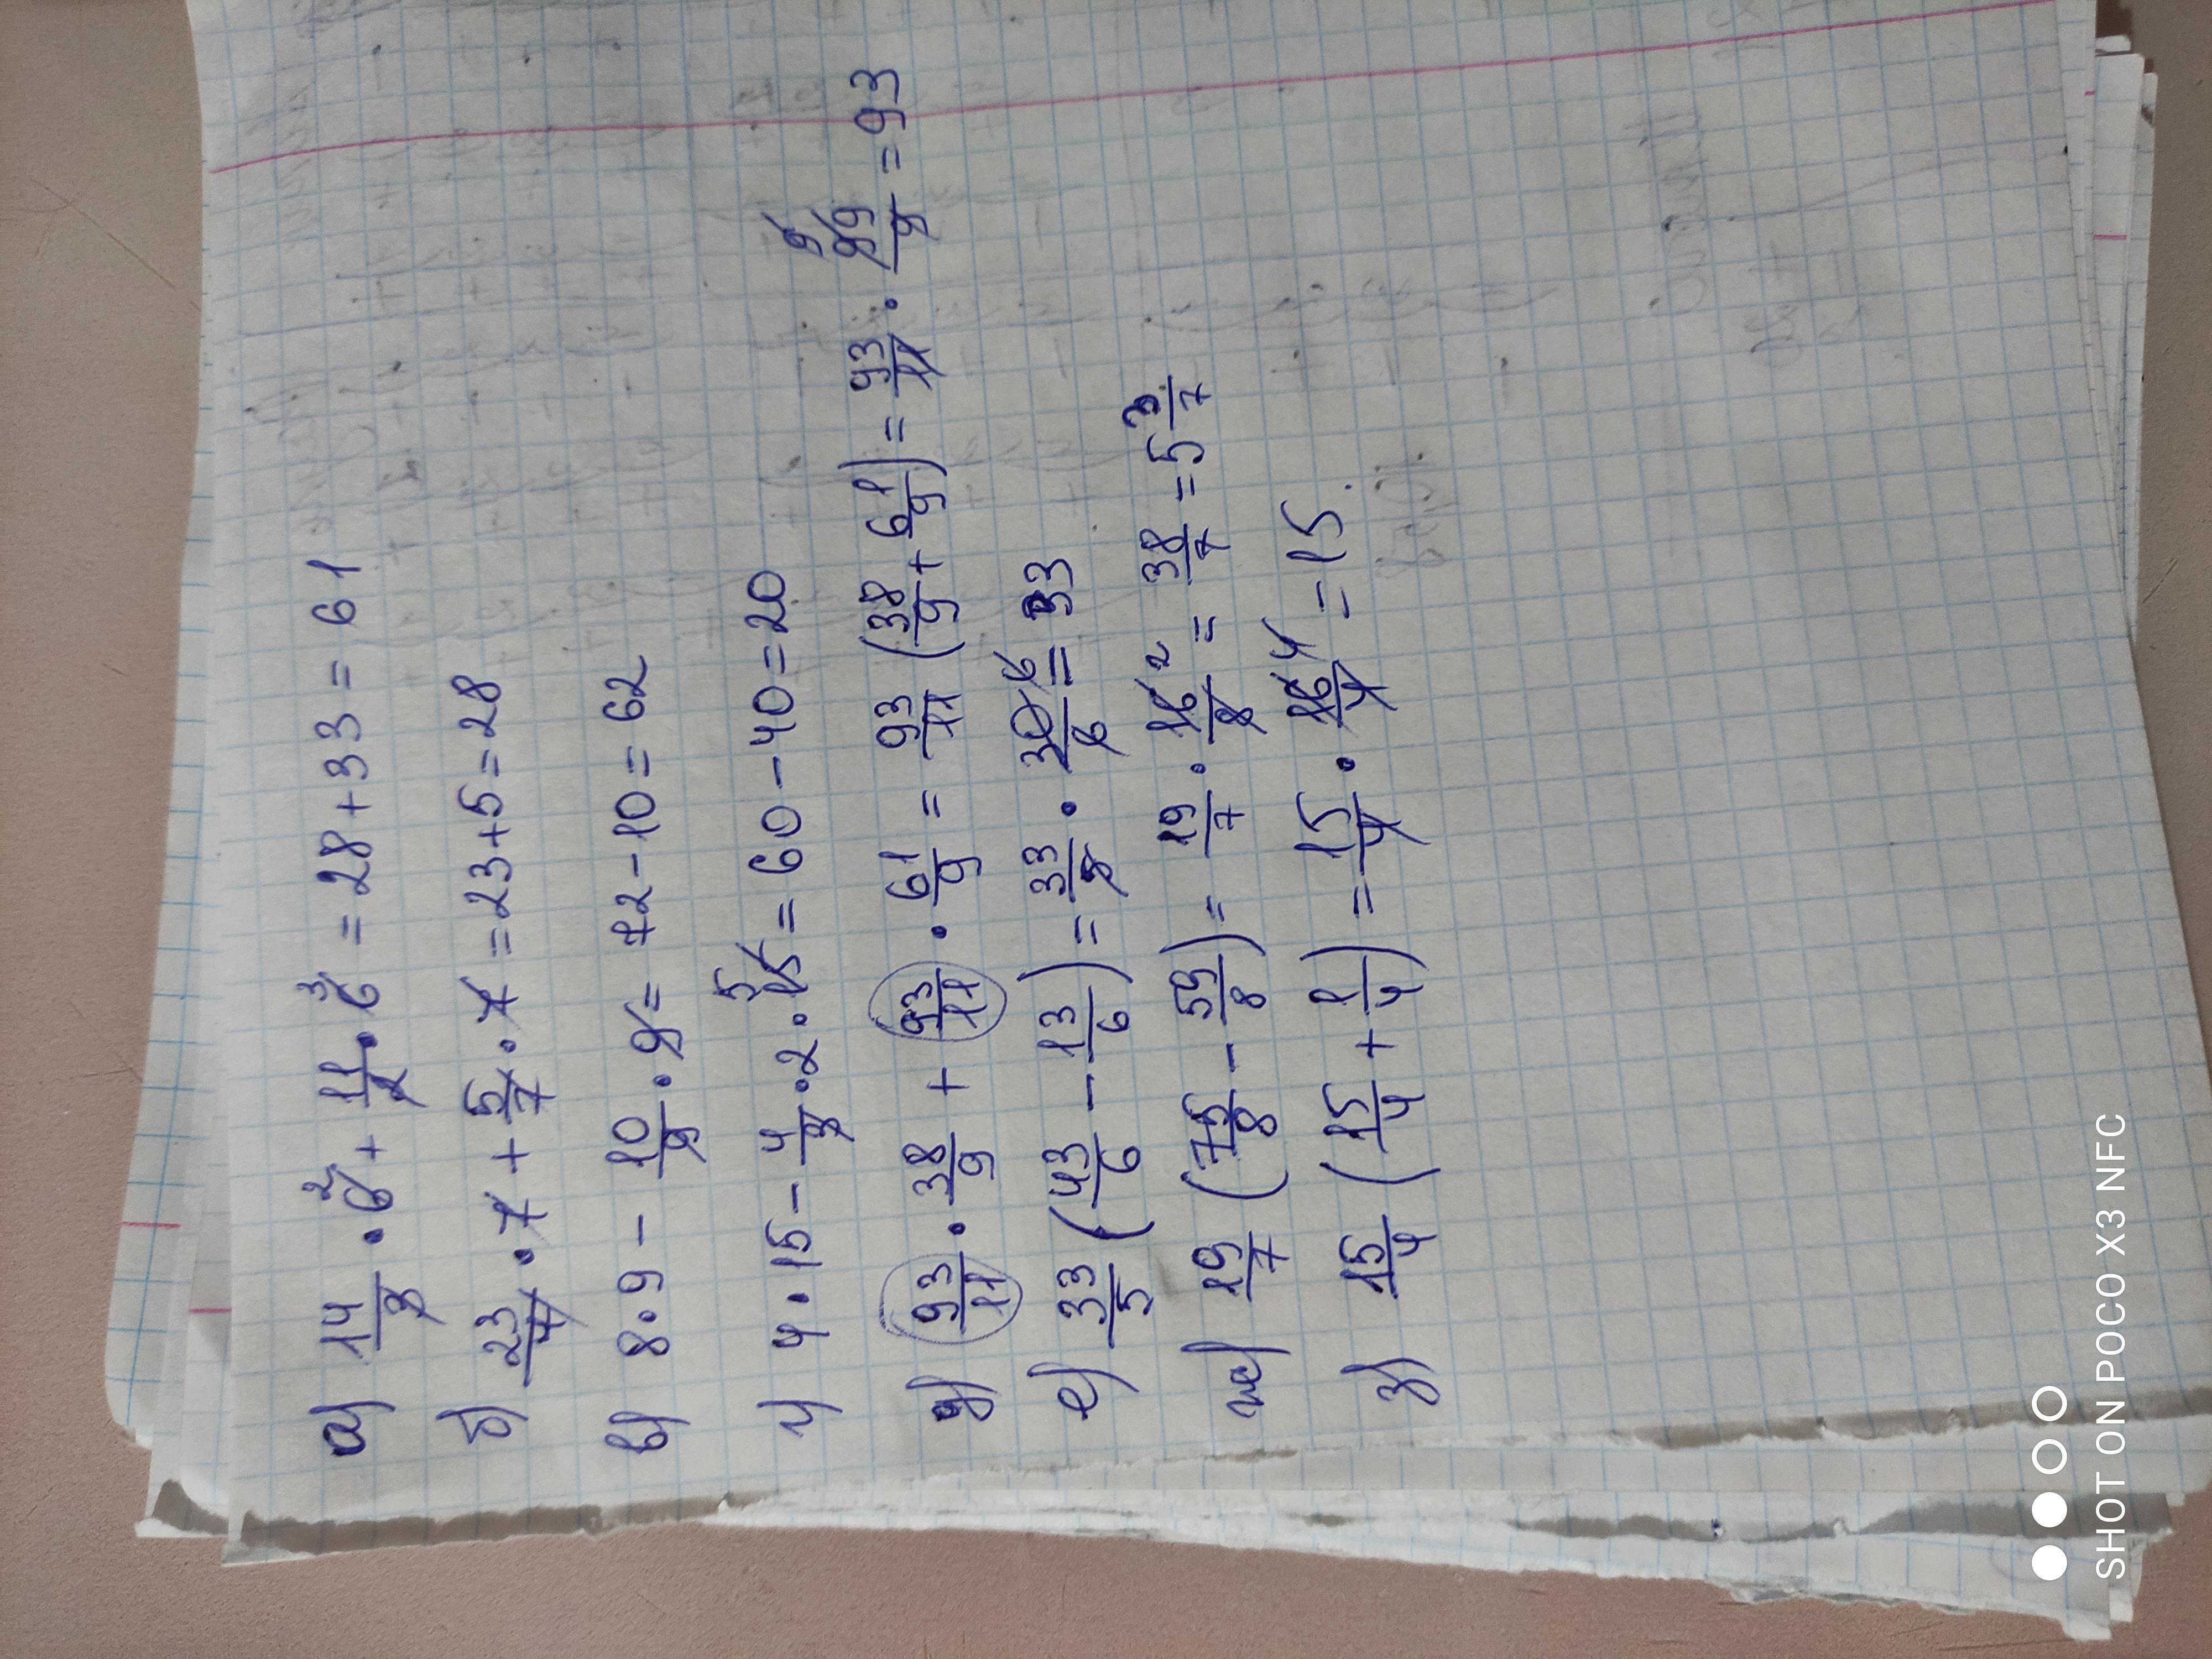 а) 14/3 · 6 2 + 11/2 · 6 3 = 28 + 33 = 61
б) 23/7 · 7 + 5/7 · 7 = 23 + 5 = 28
в) 8 · 9 - 10/9 · 9 = 72 - 10 = 62
г) 4 · 15 - 4/3 · 2 · 15 5 = 60 - 40 = 20
д) 93/11 · 38/9 + 93/11 · 61/9 = 93/11 (38/9 + 61/9) = 93/11 · 99/9 9 = 93
е) 33/5 (43/6 - 13/6) = 33/5 · 30/6 6 = 33
ж) 19/7 (75/8 - 59/8) = 19/7 · 16/8 2 = 38/7 = 5 3/7
з) 15/4 (15/4 + 1/4) = 15/4 · 16/4 4 = 15
SHOT ON POCO X3 NFC